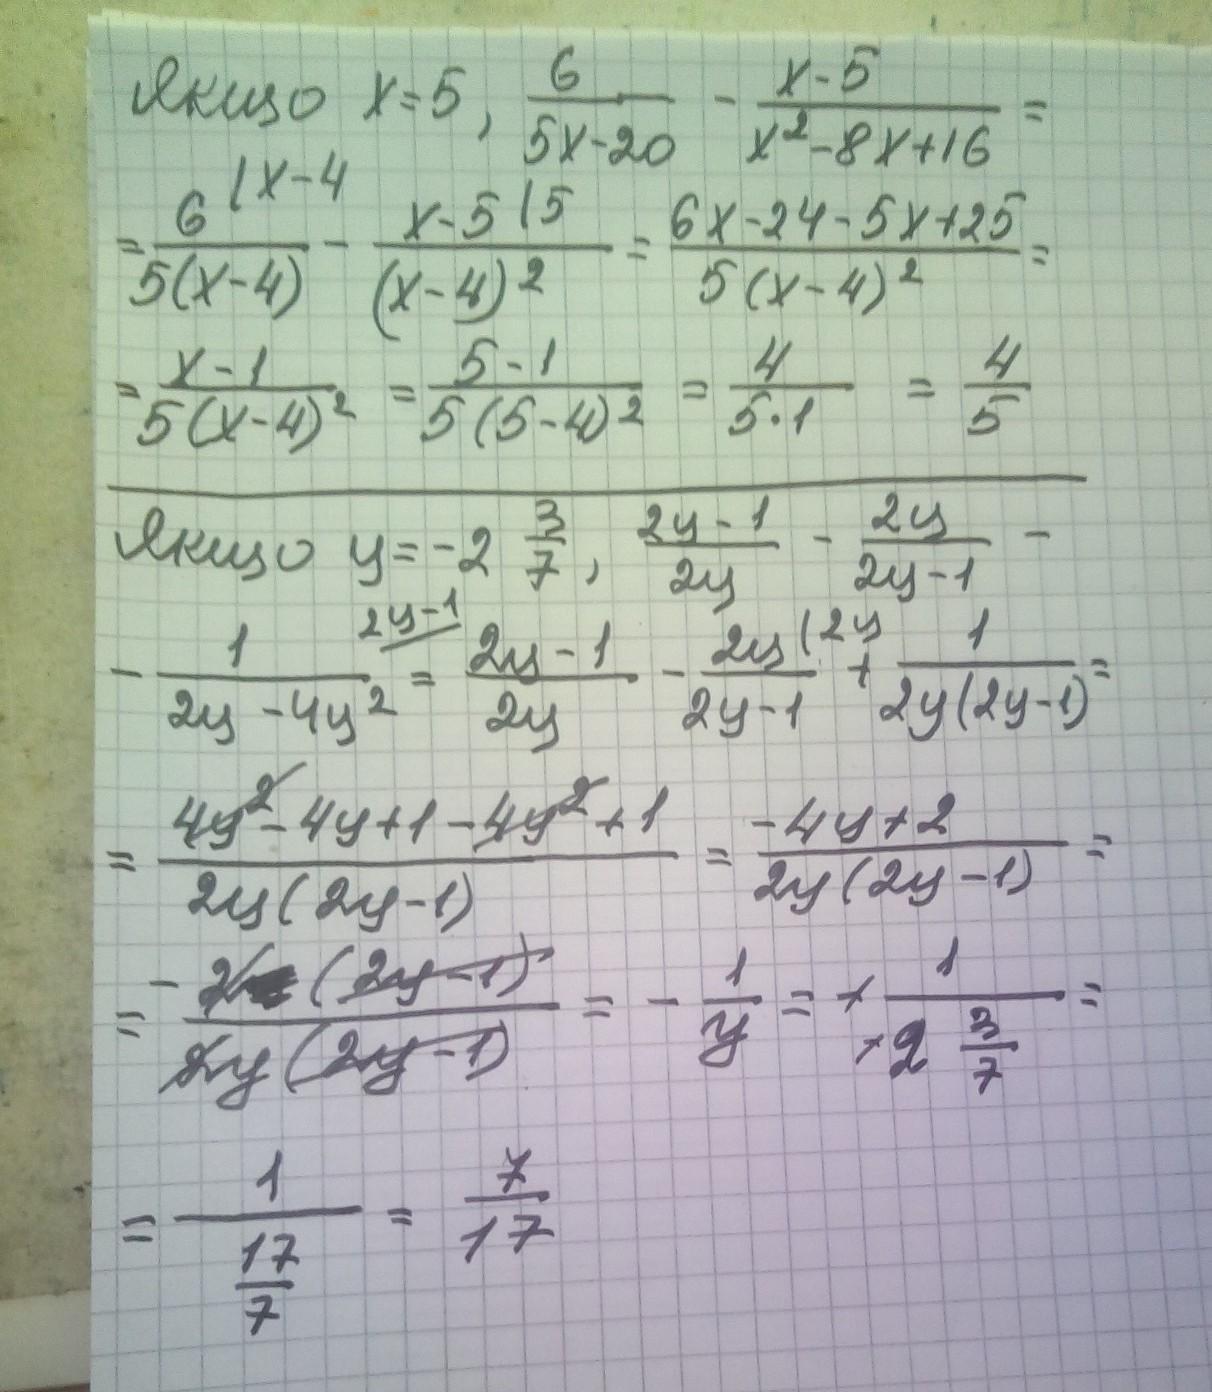 Якщо x=5, 6/(5x-20) - (x-5)/(x²-8x+16) =
= 6/(5(x-4)) |x-4 - (x-5)/((x-4)²) |5 = (6x-24-5x+25)/(5(x-4)²) =
= (x-1)/(5(x-4)²) = (5-1)/(5(5-4)²) = 4/(5·1) = 4/5
Якщо y=-2 3/7, (2y-1)/(2y) - (2y)/(2y-1) -
- 1/(2y-4y²) = 2y-1 (2y-1)/(2y) - (2y)/(2y-1) (2y + 1/(2y(2y-1)) =
= (4y²-4y+1-4y²+1)/(2y(2y-1)) = (-4y+2)/(2y(2y-1)) =
= (-2(2y-1))/(2y(2y-1)) = - 1/y = + 1/(+2 3/7) =
= 1/(17/7) = 7/17